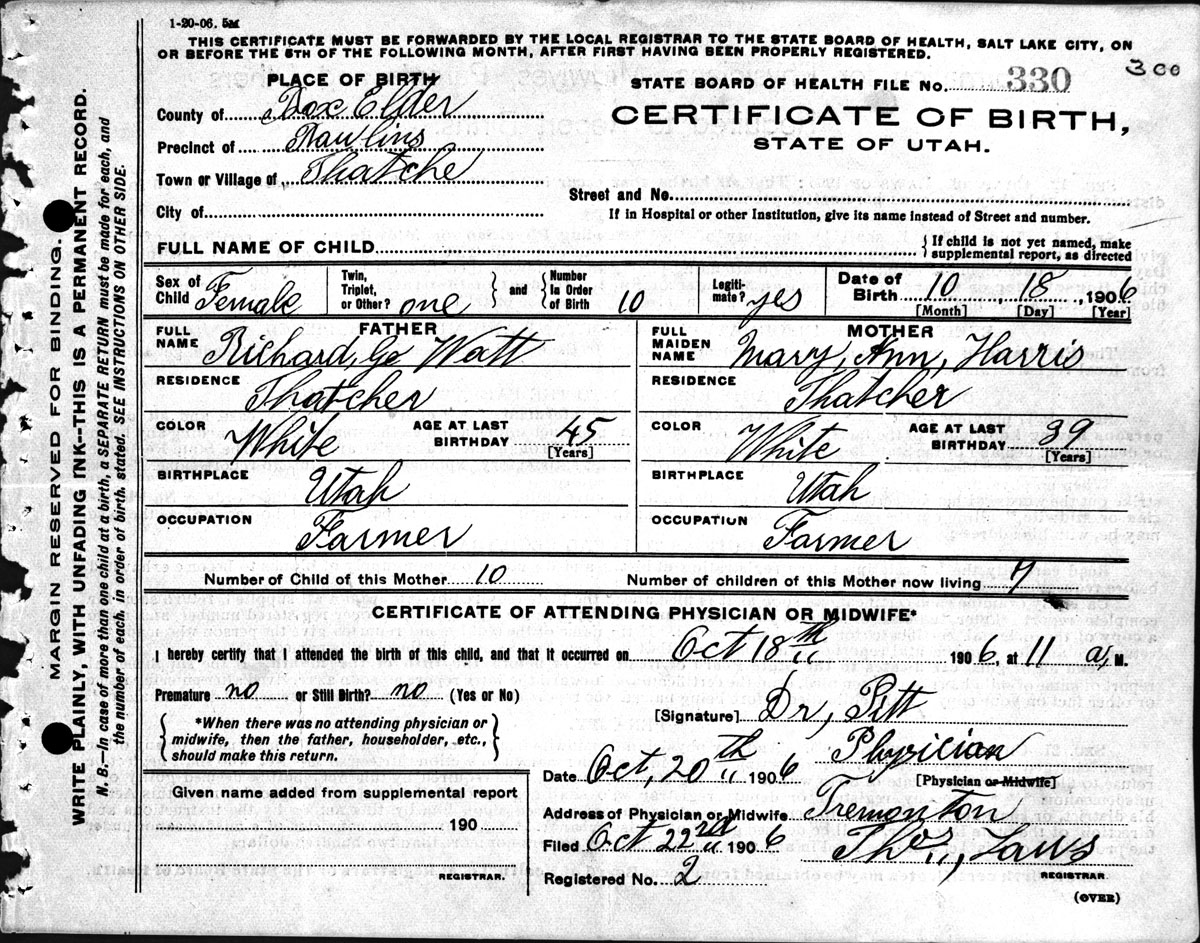 1-20-06. 5M
THIS CERTIFICATE MUST BE FORWARDED BY THE LOCAL REGISTRAR TO THE STATE BOARD OF HEALTH, SALT LAKE CITY, ON
OR BEFORE THE 5TH OF THE FOLLOWING MONTH, AFTER FIRST HAVING BEEN PROPERLY REGISTERED.
300
PLACE OF BIRTH
STATE BOARD OF HEALTH FILE No. 330
County of Box Elder
CERTIFICATE OF BIRTH,
STATE OF UTAH.
Precinct of Rawlins
Town or Village of Thatche
Street and No.
City of
If in Hospital or other Institution, give its name instead of Street and number.
FULL NAME OF CHILD
{ If child is not yet named, make
supplemental report, as directed
Sex of Child Female
Twin, Triplet, or Other? one } and { Number in Order of Birth 10
Legitimate? yes
Date of Birth 10 18, 1906
[Month] [Day] [Year]
FATHER
FULL NAME Richard, Ge Watt
RESIDENCE Thatcher
COLOR White AGE AT LAST BIRTHDAY 45 [Years]
BIRTHPLACE Utah
OCCUPATION Farmer
MOTHER
FULL MAIDEN NAME Mary, Ann, Harris
RESIDENCE Thatcher
COLOR White AGE AT LAST BIRTHDAY 39 [Years]
BIRTHPLACE Utah
OCCUPATION Farmer
Number of Child of this Mother 10 Number of children of this Mother now living 7
CERTIFICATE OF ATTENDING PHYSICIAN OR MIDWIFE*
I hereby certify that I attended the birth of this child, and that it occurred on Oct 18th 1906, at 11 a, M.
Premature no or Still Birth? no (Yes or No)
{ *When there was no attending physician or
midwife, then the father, householder, etc.,
should make this return. }
[Signature] Dr, Pitt
Physician
[Physician or Midwife]
Date Oct, 20th 1906
Address of Physician or Midwife Tremonton
Filed Oct 22rd 1906 Thos, Laws
REGISTRAR.
Registered No. 2
(OVER)
Given name added from supplemental report
190
REGISTRAR.
MARGIN RESERVED FOR BINDING.
WRITE PLAINLY, WITH UNFADING INK--THIS IS A PERMANENT RECORD.
N. B.--In case of more than one child at a birth, a SEPARATE RETURN must be made for each, and
the number of each, in order of birth, stated. SEE INSTRUCTIONS ON OTHER SIDE.